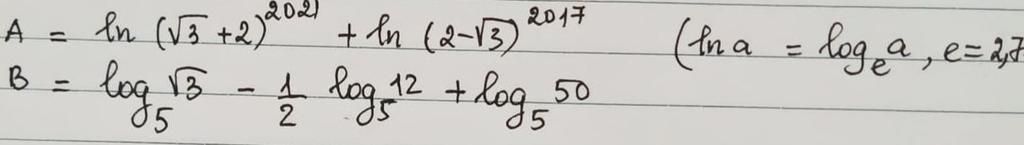 A = ln (√3 +2)^2021 + ln (2-√3)^2017 (ln a = log_e a, e = 2,7
B = log_5 √3 - 1/2 log_5 12 + log_5 50